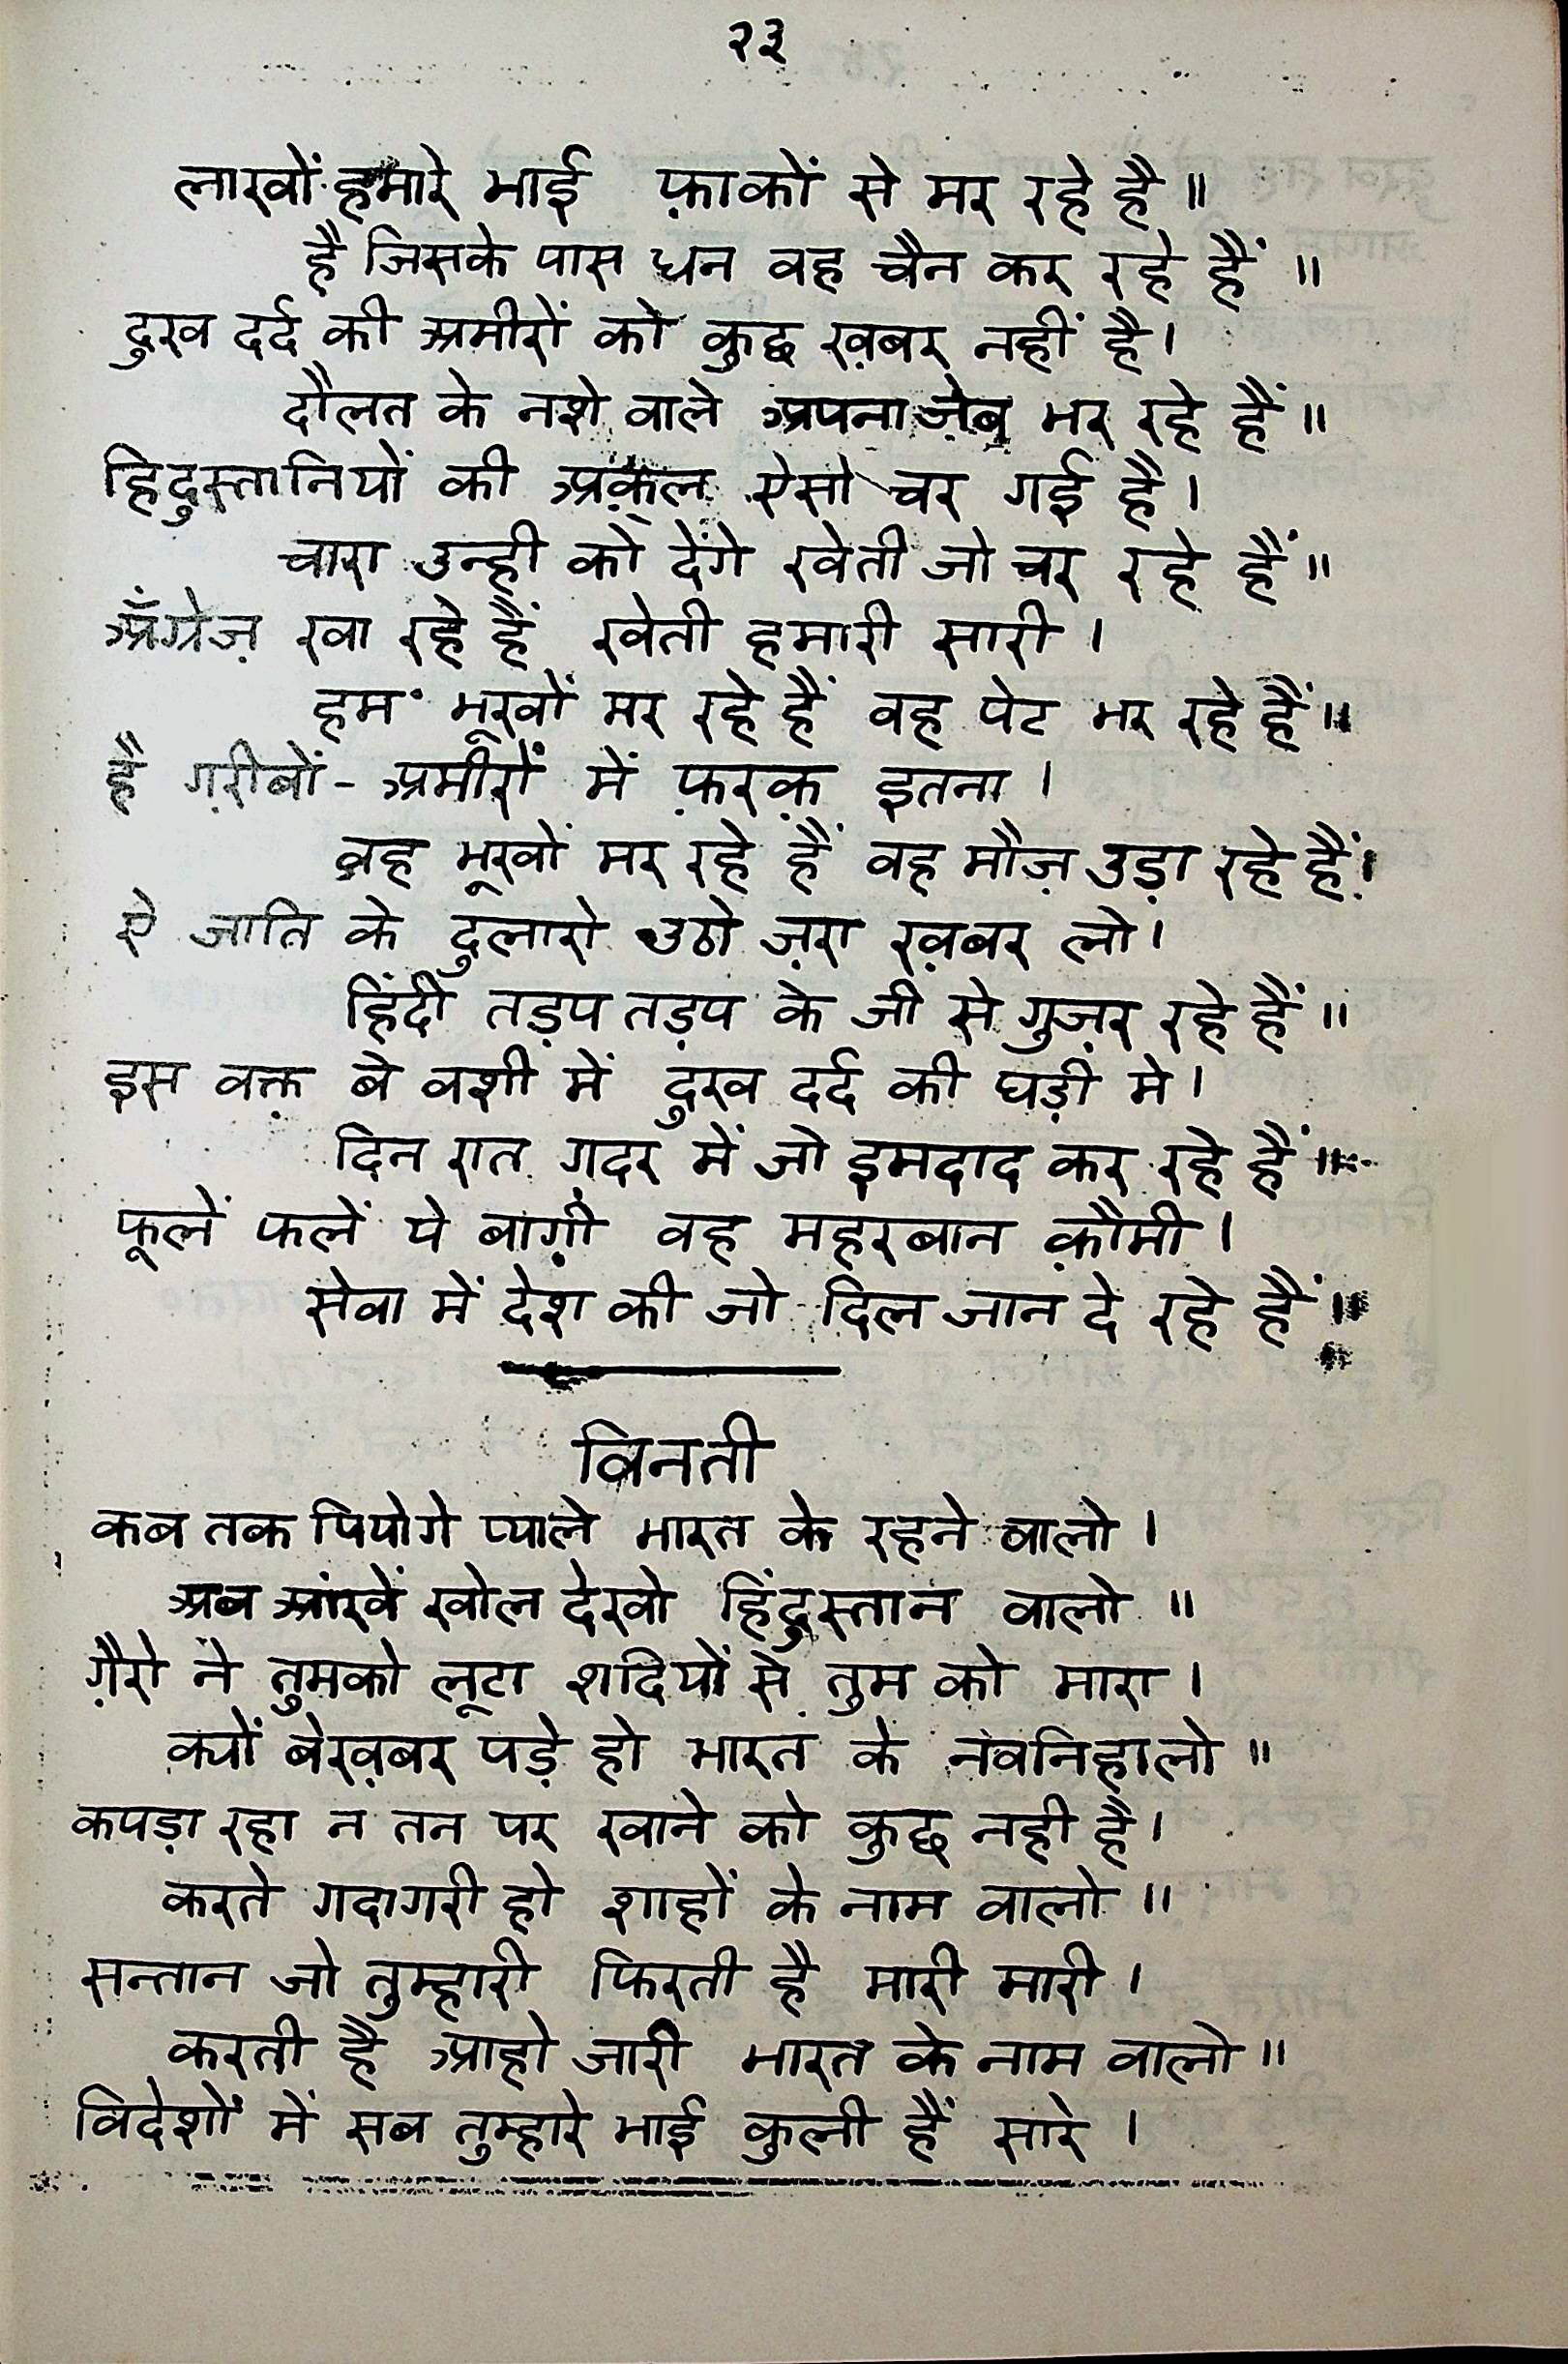 २३
लाखों हमारे भाई फ़ाकों से मर रहे है ॥
है जिसके पास धन वह चैन कर रहे हैं ॥
दुख दर्द की अमीरों को कुछ ख़बर नहीं है।
दौलत के नशे वाले अपना जेब भर रहे हैं ॥
हिंदुस्तानियों की अक़्ल ऐसी चर गई है।
चारा उन्ही को देंगे खेती जो चर रहे हैं ॥
अँग्रेज़ खा रहे हैं खेती हमारी सारी ।
हम भूखों मर रहे हैं वह पेट भर रहे हैं ॥
है ग़रीबों - अमीरों में फ़रक़ इतना ।
वह भूखों मर रहे हैं वह मौज़ उड़ा रहे हैं।
ऐ जाति के दुलारो उठो ज़रा ख़बर लो।
हिंदी तड़प तड़प के जी से गुज़र रहे हैं ॥
इस वक्त़ बे वशी में दुख दर्द की घड़ी मे।
दिन रात ग़दर में जो इमदाद कर रहे हैं ॥
फूलें फलें ये बाग़ी वह महरबान क़ौमी ।
सेवा में देश की जो दिल जान दे रहे हैं ॥
विनती
कब तक पियोगे प्याले भारत के रहने वालो ।
अब आंखें खोल देखो हिंदुस्तान वालो ॥
ग़ैरो ने तुमको लूटा शदियों से तुम को मारा ।
क्यों बेख़बर पड़े हो भारत के नवनिहालो ॥
कपड़ा रहा न तन पर खाने को कुछ नही है।
करते गदागरी हो शाहों के नाम वालो ॥
सन्तान जो तुम्हारी फिरती है मारी मारी ।
करती है आहो जारी भारत के नाम वालो ॥
विदेशों में सब तुम्हारे भाई कुली हैं सारे ।